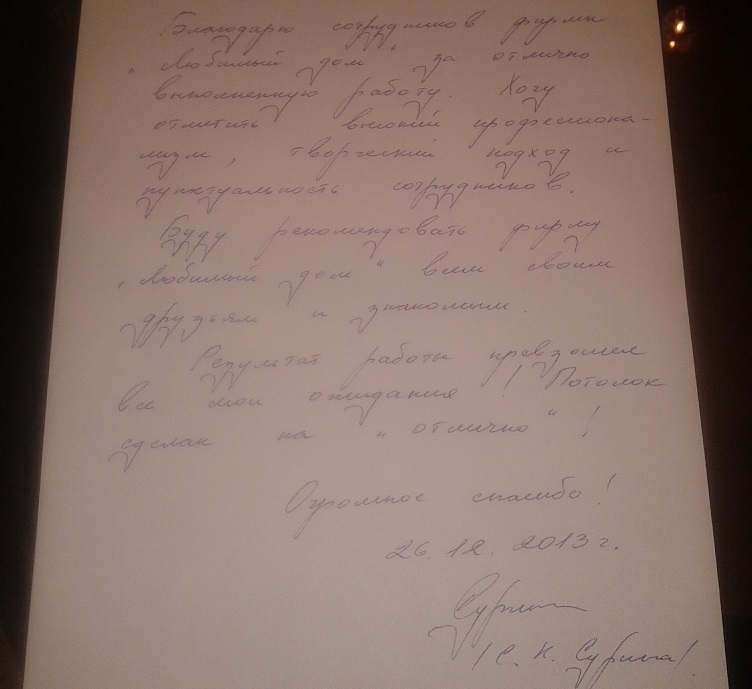 Благодарю сотрудников фирмы
"Любимый дом" за отлично
выполненную работу. Хочу
отметить высокий профессиона-
лизм, творческий подход и
пунктуальность сотрудников.
Буду рекомендовать фирму
"Любимый дом" всем своим
друзьям и знакомым.
Результат работы превзошел
все мои ожидания! Потолок
сделан на "отлично"!
Огромное спасибо!
26.12.2013 г.
/С. К. Сурина/